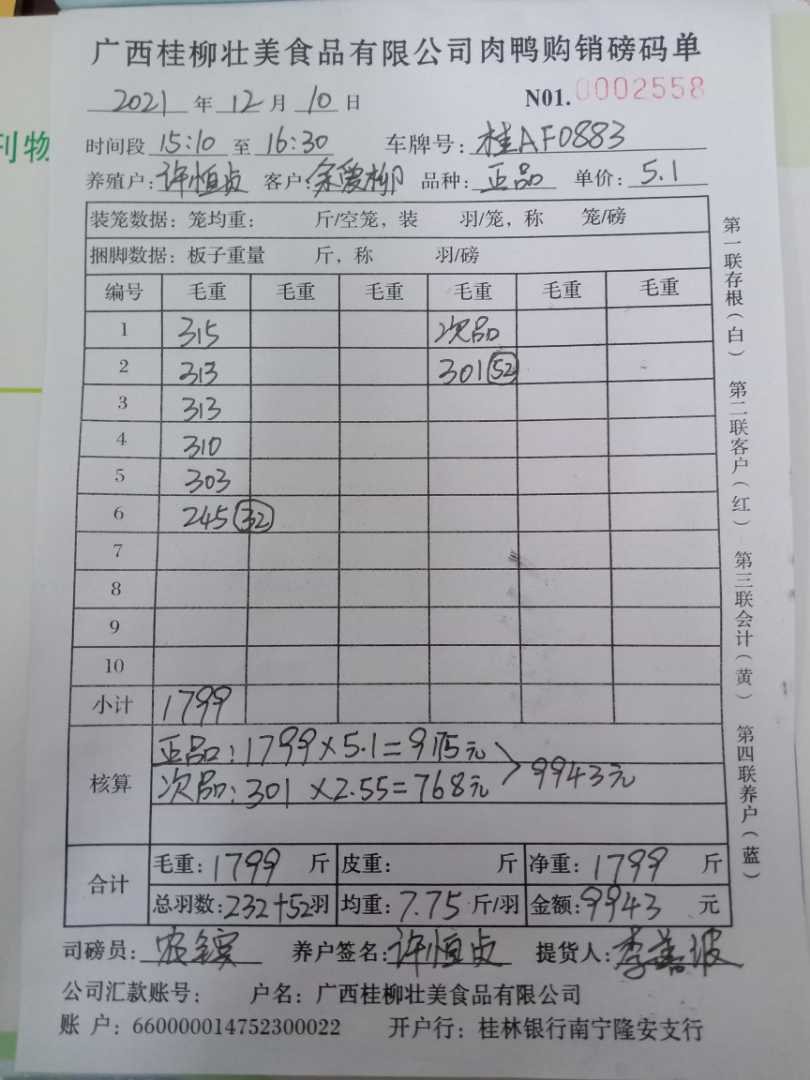 刊物
广西桂柳壮美食品有限公司肉鸭购销磅码单
2021 年 12 月 10 日 N01. 0002558
时间段 15:10 至 16:30 车牌号: 桂AF0883
养殖户: 许恒贞 客户: 余爱柳 品种: 正品 单价: 5.1
装笼数据: 笼均重: 斤/空笼, 装 羽/笼, 称 笼/磅
捆脚数据: 板子重量 斤, 称 羽/磅
编号 毛重 毛重 毛重 毛重 毛重 毛重
1 315 次品
2 313 301 52
3 313
4 310
5 303
6 245 32
7
8
9
10
小计 1799
核算
正品: 1799×5.1=9175元
次品: 301×2.55=768元
9943元
合计
毛重: 1799 斤 皮重: 斤 净重: 1799 斤
总羽数: 232+52羽 均重: 7.75 斤/羽 金额: 9943 元
司磅员: 养户签名: 许恒贞 提货人: 李善波
公司汇款账号: 户名: 广西桂柳壮美食品有限公司
账 户: 660000014752300022 开户行: 桂林银行南宁隆安支行
第一联存根(白) 第二联客户(红) 第三联会计(黄) 第四联养户(蓝)